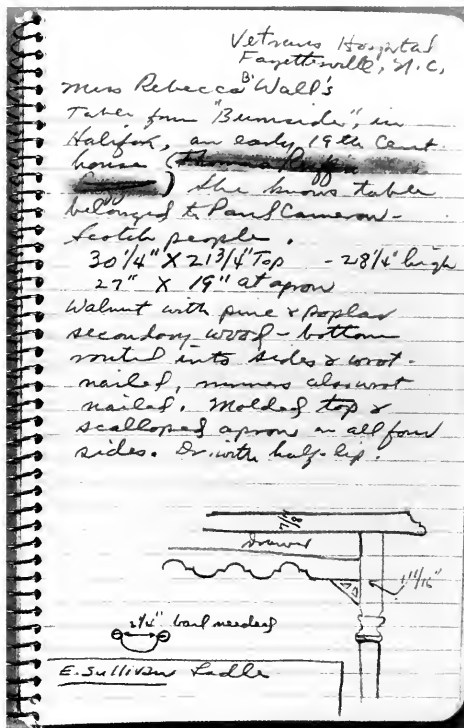 Vetrans Hospital
Fayetteville, N.C.
Miss Rebecca B. Wall's
Table from "Burnside", in
Halifax, an early 19th Cent.
house (Thomas Ruffin
) She knows table
belonged to Paul Cameron -
Scotch people.
30 1/4" X 21 3/4" Top - 28 1/4" high
27" X 19" at apron
Walnut with pine & poplar
secondary wood - bottom
routed into sides & wrot-
nailed, runners also wrot
nailed. Molded top &
scalloped apron on all four
sides. Dr. with half-lip.
7/8
Drawer
1 11/16"
2 1/4" bail needed
E. Sullivan Ladle